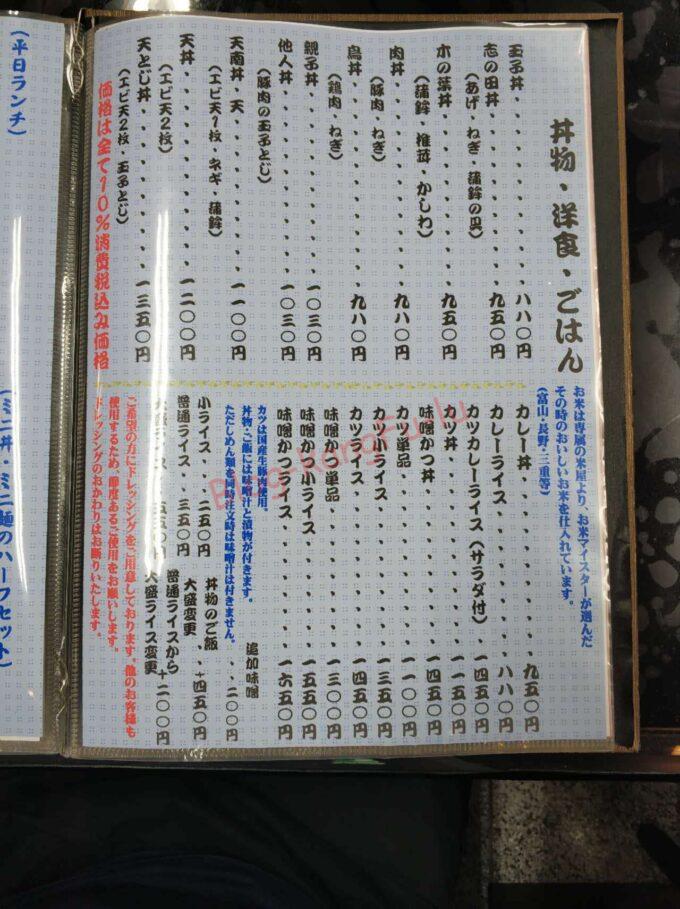 丼物・洋食・ごはん
お米は専属の米屋より、お米マイスターが選んだ
その時のおいしいお米を仕入れています。
(富山・長野・三重等)
玉子丼・・・・・・・・・・・八八〇円
志の田丼・・・・・・・・・・九五〇円
(あげ・ねぎ・蒲鉾の具)
木の葉丼・・・・・・・・・・九五〇円
(蒲鉾 椎茸・かしわ)
肉丼・・・・・・・・・・・・九八〇円
(豚肉 ねぎ)
鳥丼・・・・・・・・・・・・九八〇円
(鶏肉・ねぎ)
親子丼・・・・・・・・・・・一〇三〇円
他人丼・・・・・・・・・・・一〇三〇円
(豚肉の玉子とじ)
天南丼・天・・・・・・・・・一一〇〇円
(エビ天1枚・ネギ・蒲鉾)
天丼・・・・・・・・・・・・一二〇〇円
(エビ天2枚)
天とじ丼・・・・・・・・・・一三五〇円
(エビ天2枚・玉子とじ)
価格は全て10%消費税込み価格
カレー丼・・・・・・・・・・九五〇円
カレーライス・・・・・・・・八八〇円
カツカレーライス(サラダ付)・一四五〇円
カツ丼・・・・・・・・・・・一一五〇円
味噌かつ丼・・・・・・・・・一四五〇円
カツ単品・・・・・・・・・・一一〇〇円
カツ小ライス・・・・・・・・一三五〇円
カツライス・・・・・・・・・一四五〇円
味噌かつ単品・・・・・・・・一三〇〇円
味噌かつ小ライス・・・・・・一五五〇円
味噌かつライス・・・・・・・一六五〇円
追加味噌・・・二〇〇円
カツは国産生豚肉使用。
丼物・ご飯には味噌汁と漬物が付きます。
ただしめん類を同時注文時は味噌汁は付きません。
小ライス・・・二五〇円
普通ライス・・三五〇円
大盛ライス・・五五〇円
丼物のご飯
大盛変更・・+四五〇円
普通ライスから
大盛ライス変更 +二〇〇円
ご希望の方にドレッシングをご用意しております。他のお客様も
使用するため、節度あるご使用をお願いします。
ドレッシングのおかわりはお断りいたします。
(平日ランチ)
(ミニ丼・ミニ麺のハーフセット)